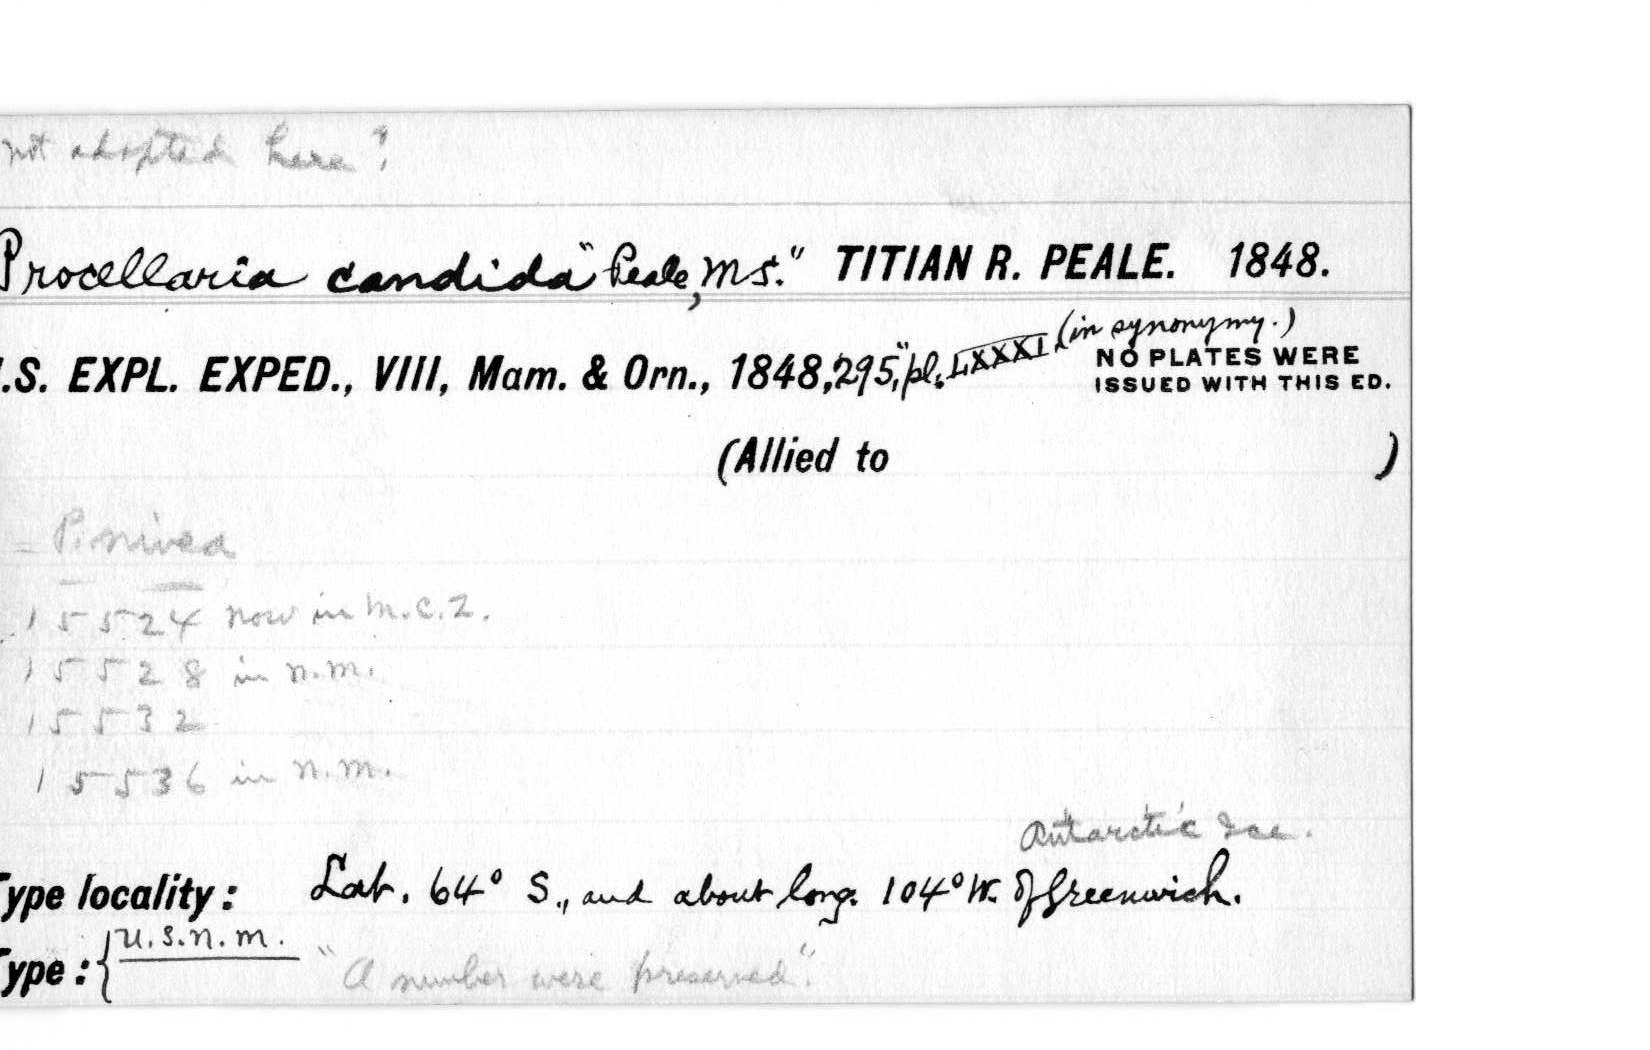 not adopted here?
Procellaria candida "Peale, MS." TITIAN R. PEALE. 1848.
(in synonymy.)
.S. EXPL. EXPED., VIII, Mam. & Orn., 1848, 295, "pl. LXXXI NO PLATES WERE
ISSUED WITH THIS ED.
(Allied to )
= P. nivea
15524 now in M.C.Z.
15528 in N.M.
15532
15536 in N.M.
Antarctic Ice.
Type locality: Lat. 64° S., and about long. 104° W. of Greenwich.
U.S.N.M.
Type: { "A number were preserved".